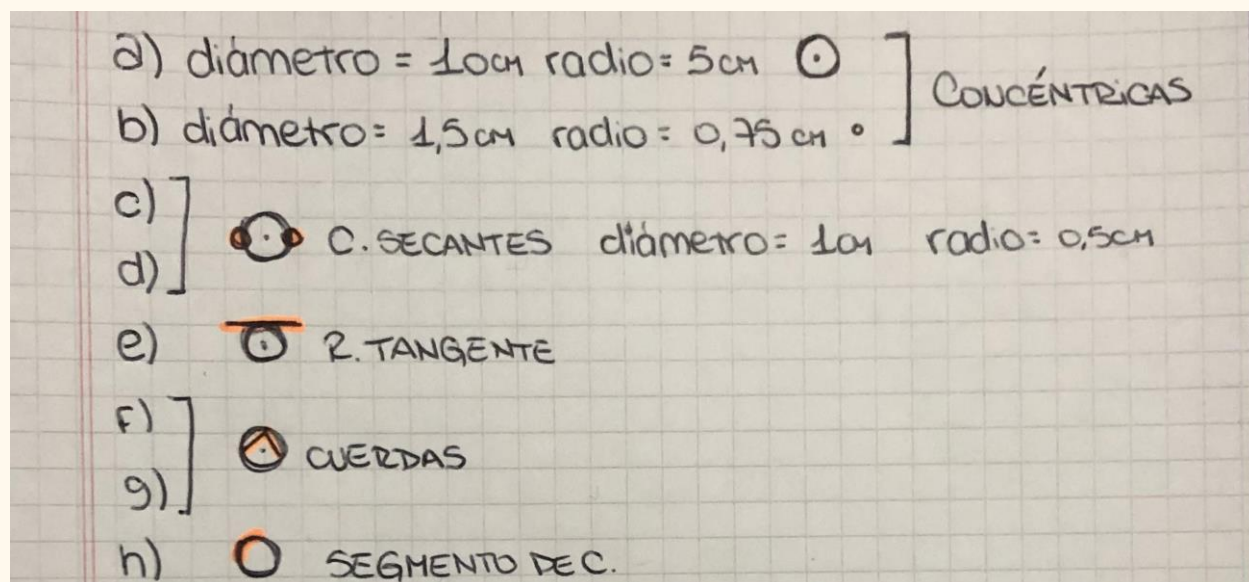 a) diámetro = 10cm radio = 5cm
b) diámetro = 1,5cm radio = 0,75cm
CONCÉNTRICAS
c)
d)
C. SECANTES diámetro = 1cm radio = 0,5cm
e) R. TANGENTE
f)
g)
CUERDAS
h) SEGMENTO DE C.